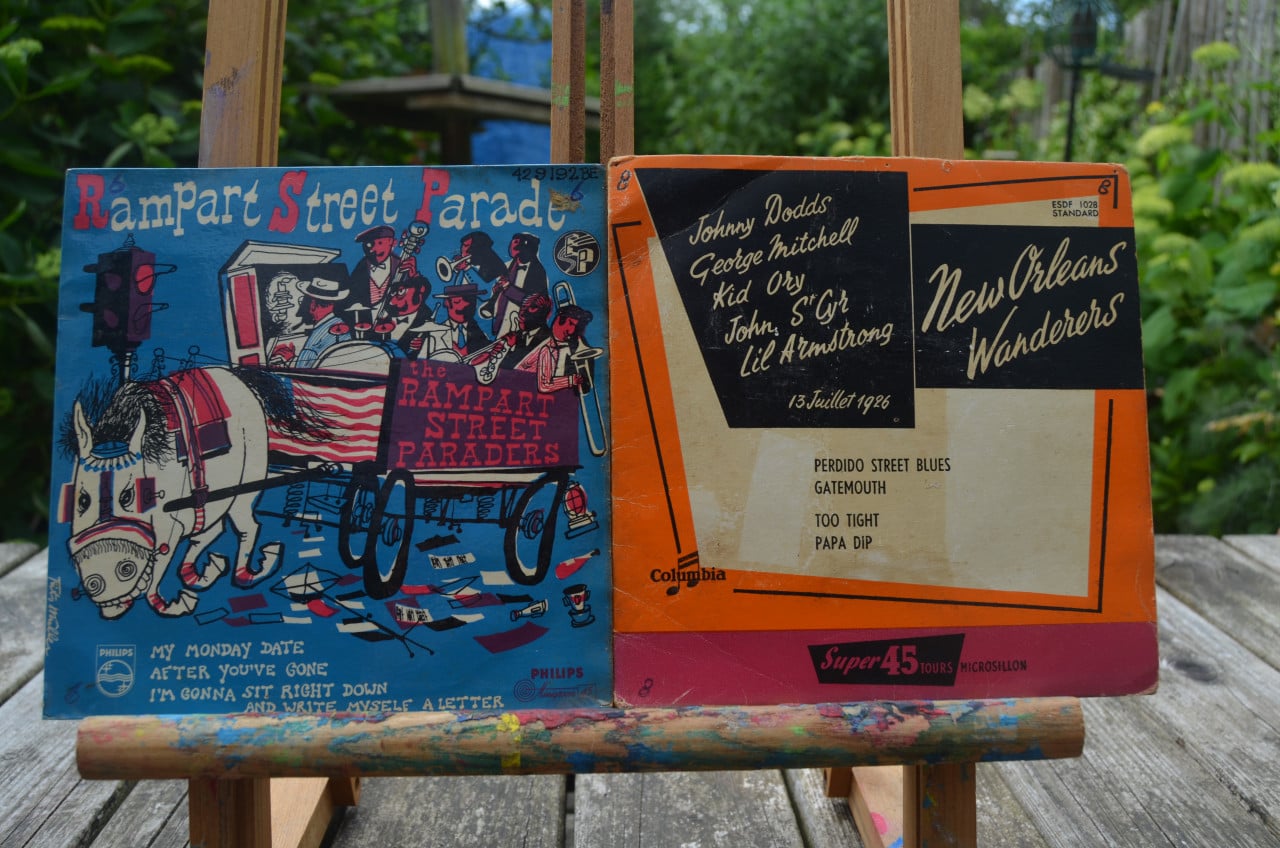 Rampart Street Parade
429192BE
6
6
the
RAMPART
STREET
PARADERS
PHILIPS
MY MONDAY DATE
AFTER YOU'VE GONE
I'M GONNA SIT RIGHT DOWN
AND WRITE MYSELF A LETTER
PHILIPS
6
8
8
ESDF 1028
STANDARD
Johnny Dodds
George Mitchell
Kid Ory
John. St Cyr
Lil Armstrong
13 Juillet 1926
New Orleans
Wanderers
PERDIDO STREET BLUES
GATEMOUTH
TOO TIGHT
PAPA DIP
Columbia
Super 45 TOURS MICROSILLON
8